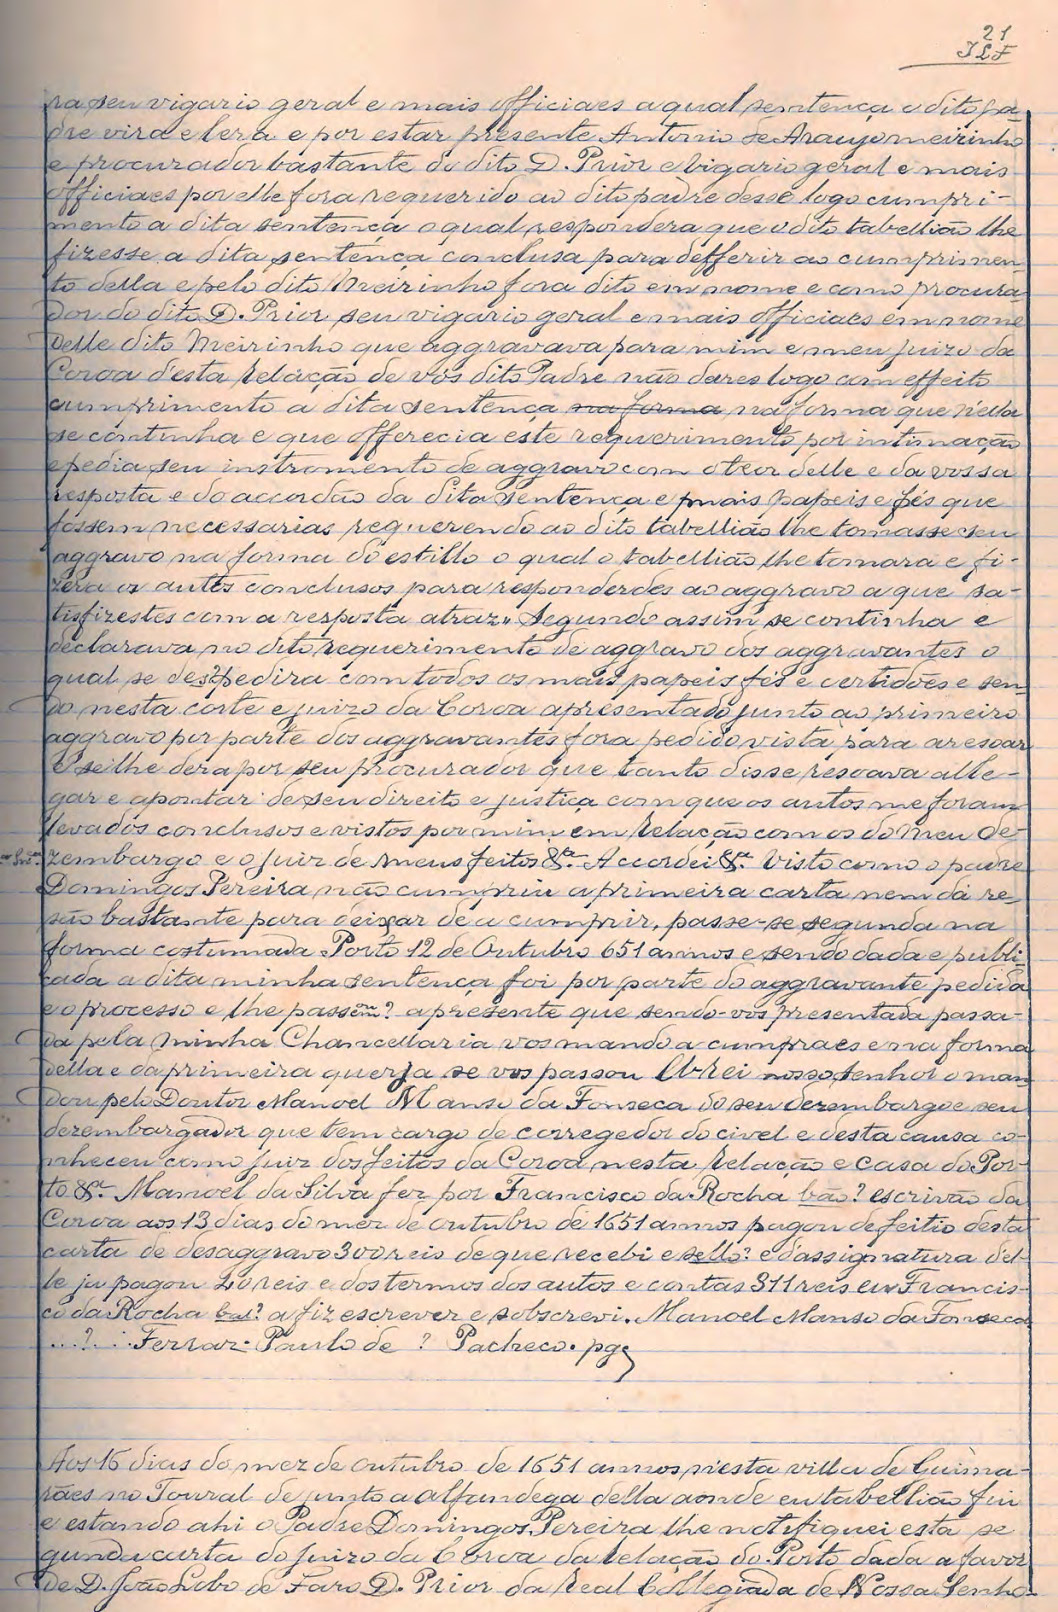 21
JLF
ra seu vigario geral e mais officiaes a qual sentença o dito pa-
dre vira e lera e por estar presente Antonio de Araujo meirinho
e procurador bastante do dito D. Prior e vigario geral e mais
officiaes por elle fora requerido ao dito padre desse logo cumpri-
mento a dita sentença o qual respondera que o dito tabellião lhe
fizesse a dita sentença conclusa para defferir ao cumprimen-
to della e pelo dito Meirinho fora dito em nome e como procura-
dor do dito D. Prior seu vigario geral e mais officiaes em nome
delle dito Meirinho que aggravava para mim e meu juizo da
Coroa d'esta Relação de vós dito Padre não dares logo com effeito
cumprimento a dita sentença na forma na forma que n'ella
se continha e que offerecia este requerimento por intimação
e pedia seu instromento de aggravo com o teor delle e da vossa
resposta e do accordão da dita sentença e mais papeis e fés que
fossem necessarias requerendo ao dito tabellião lhe tomasse seu
aggravo na forma do estillo o qual o tabellião lhe tomara e fi-
zera os autos conclusos para responderdes ao aggravo a que sa-
tisfizestes com a resposta atraz,, Segundo assim se continha e
declarava no dito requerimento de aggravo dos aggravantes o
qual se des?pedira com todos os mais papeis fés e certidões e sen-
do nesta corte e juizo da Coroa apresentado junto ao primeiro
aggravo por parte dos aggravantes fora pedido vista para aresoar
e se lhe dera por seu procurador que tanto disse resoava alle-
gar e apontar de seu direito e justiça com que os autos me foram
levados conclusos e vistos por mim em Relação com os do meu De-
zembargo e o Juiz de meus feitos &ª. Accordei &ª. Visto como o padre
Domingos Pereira não cumpriu a primeira carta nem dá re-
são bastante para deixar de a cumprir, passe-se segunda na
forma costumada. Porto 12 de Outubro 651 annos e sendo dada e publi-
cada a dita minha sentença foi por parte do aggravante pedida
e o processo e lhe passou? a presente que sendo-vos presentada passa-
da pela minha Chancellaria vos mando a cumpraes e na forma
della e da primeira que ja se vos passou El-rei nosso senhor o man-
dou pelo Doutor Manoel Manso da Fonseca do seu dezembargo e seu
dezembargador que tem cargo de corregedor do civel e desta causa co-
nheceu como Juiz dos feitos da Coroa nesta Relação e casa do Por-
to &ª. Manoel da Silva fez por Francisco da Rocha bão? escrivão da
Coroa aos 13 dias do mez de outubro de 1651 annos pagou de feitio desta
carta de desaggravo 300 reis de que recebi e sello? e d'assignatura del-
le ja pagou 20 reis e dos termos dos autos e contas 311 reis eu Francis-
co da Rocha a fiz escrever e sobscrevi. Manoel Manso da Fonseca
...?... Ferraz. Paulo de ? Pacheco. pg.

Aos 16 dias do mez de outubro de 1651 annos n'esta villa de Guima-
rães no Toural de junto a alfandega della aonde eu tabellião fui
e estando ahi o Padre Domingos Pereira lhe notifiquei esta se-
gunda carta do Juizo da Coroa da Relação do Porto dada a favor
de D. João Lobo de Faro D. Prior da Real Collegiada de Nossa Senho-